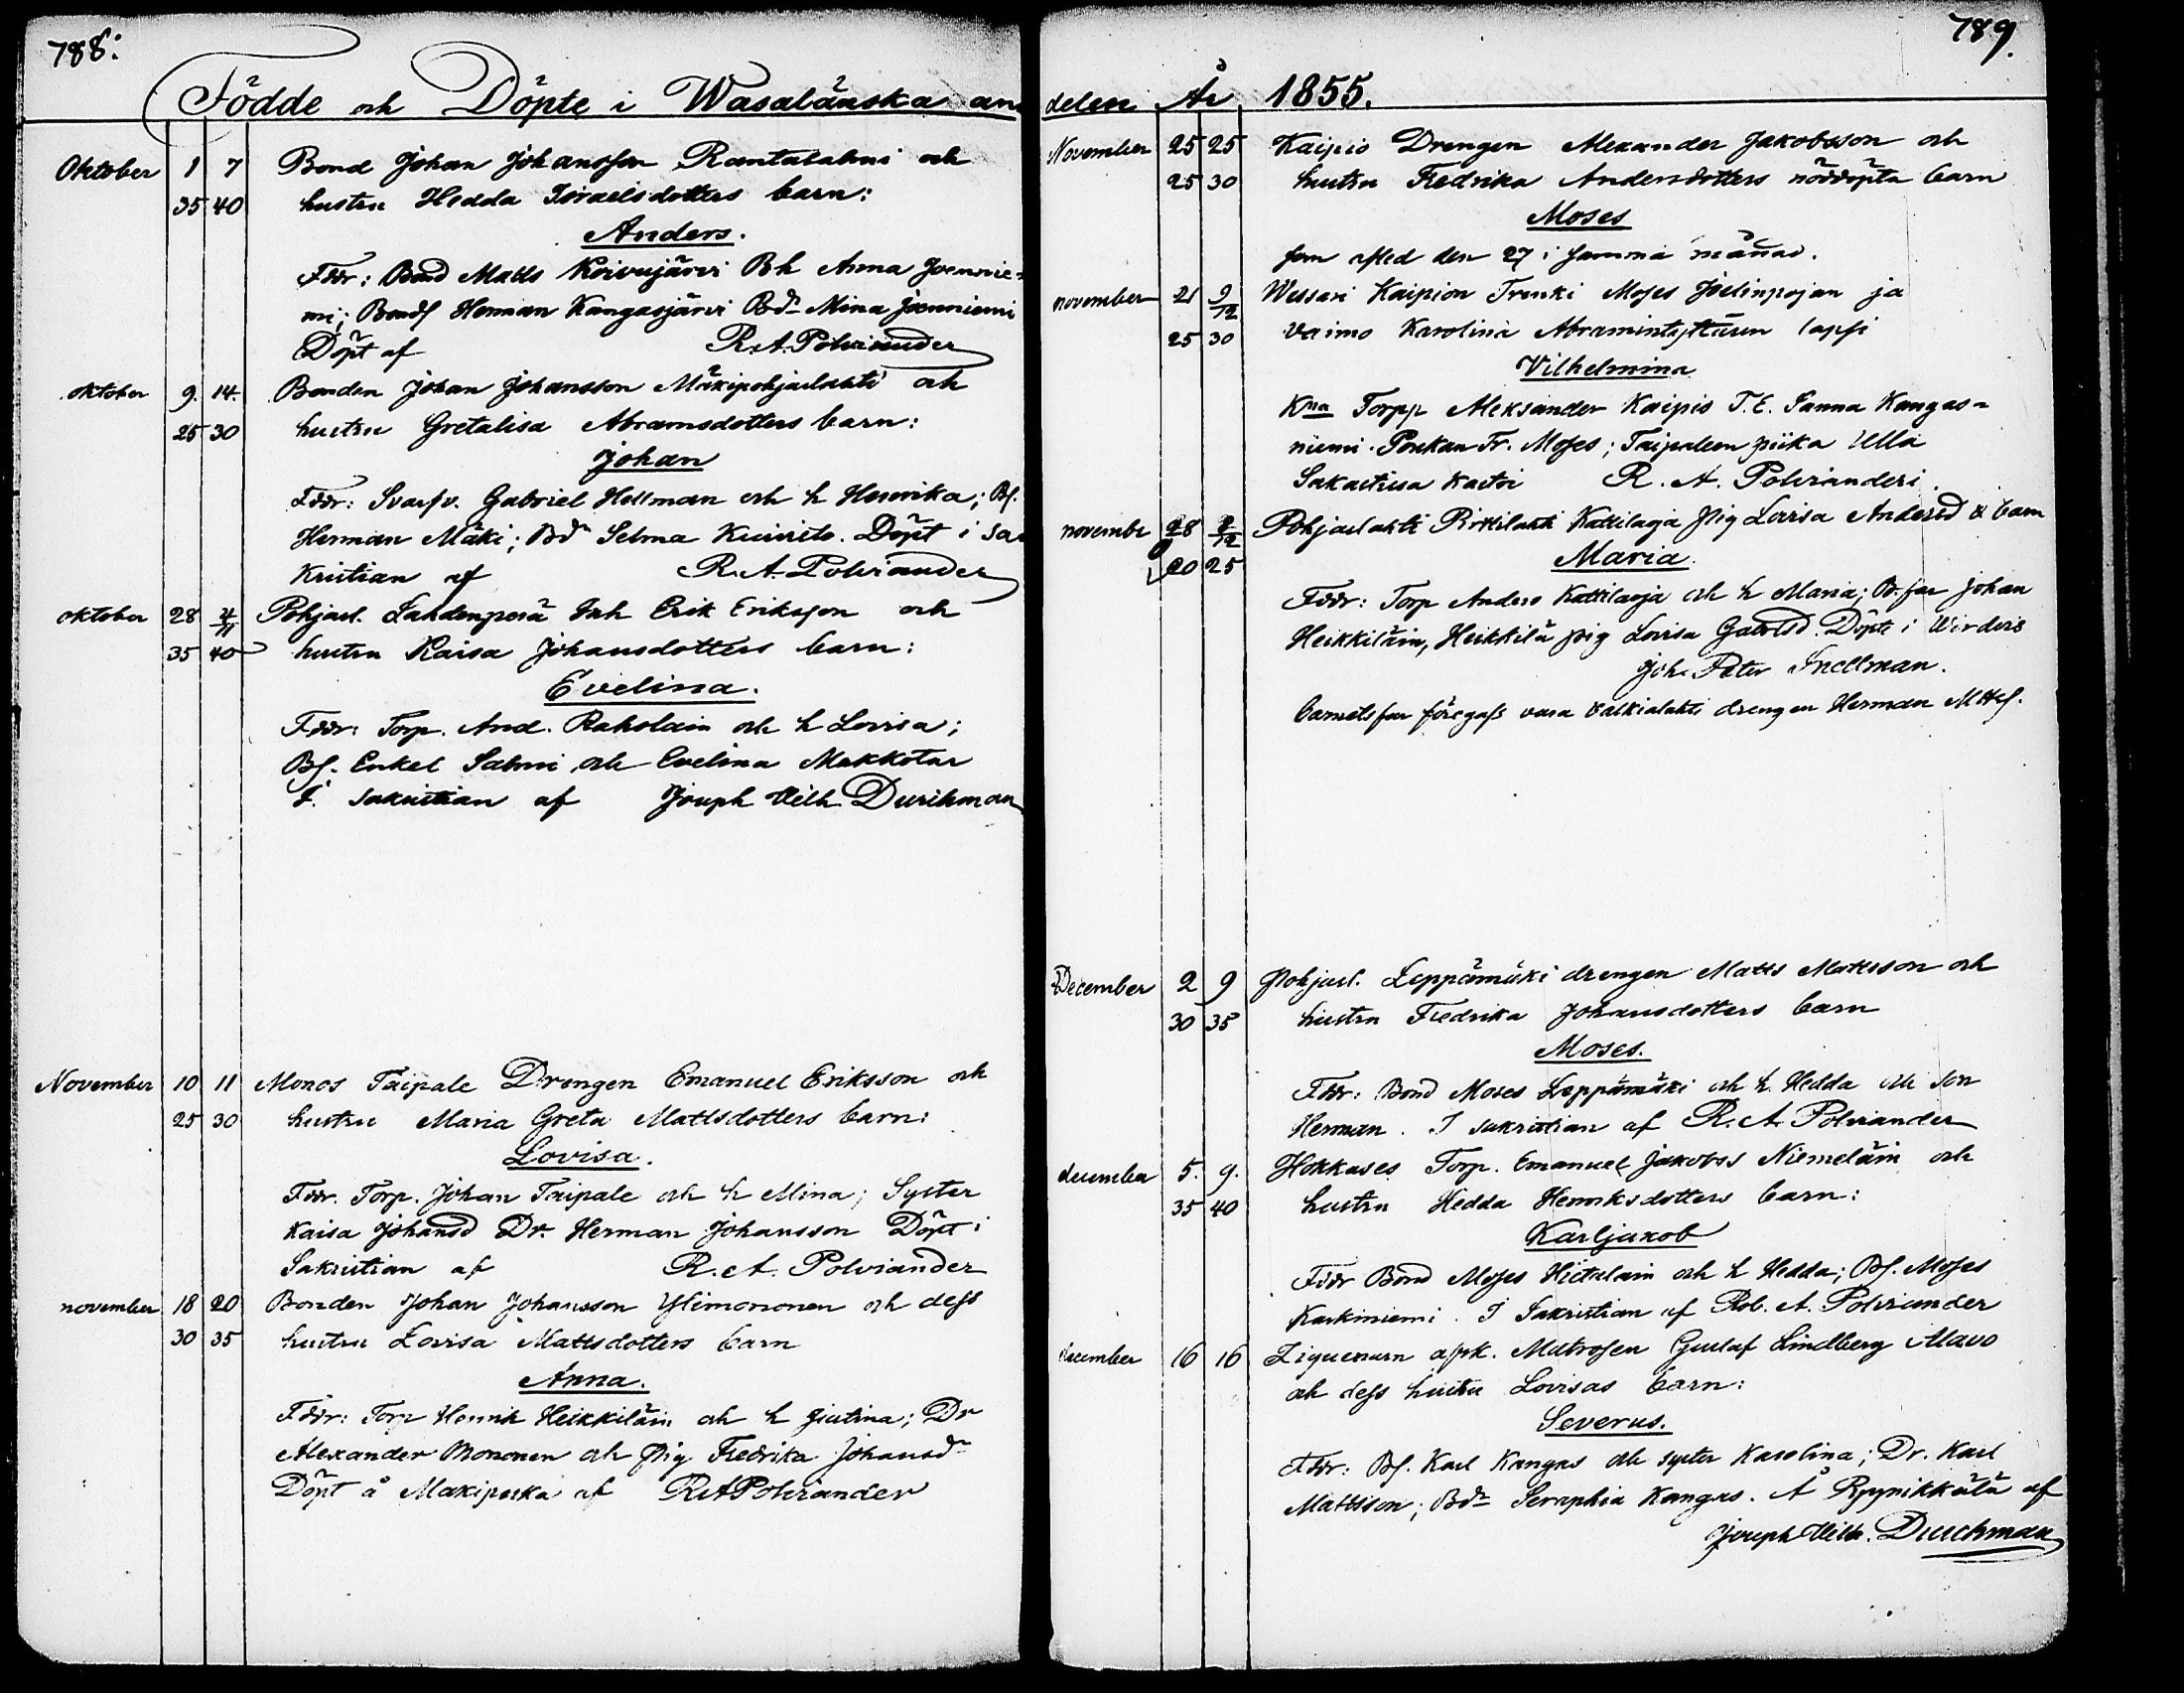 788:
Födde och Döpte i Wasalänska an
Oktober 1 7 Bond Johan Johansson Rantasalmi och
35 40 hustru Hedda Israelsdotters barn:
Anders.
Fddr: Bond Matts Koivujärvi Bh Anna Joennie-
mi; Bondf Herman Kangasjärvi Bdr Mina Joenniemi
Döpt af R. A. Polviander
oktober 9. 14. Bonden Johan Johansson Mäkipohjaslahti och
25 30 hustru Gretalisa Abramsdotters barn:
Johan
Fddr: Svarfv. Gabriel Hellman och h Henrika; Bf.
Herman Mäki; Bdr Selma Kuivisto. Döpt i Sa
kristian af R. A. Polviander
oktober 28 4/11 Pohjasl. Lahdenperä Inh Erik Eriksson och
35 40 hustru Kaisa Johansdotters barn:
Evelina.
Fddr: Torp. And. Raholain och h Lovisa;
Bf. Enkel Salmi och Evelina Makkotar
I. sakristian af Joseph Vilh. Durchman
November 10 11 Monos Taipale Drengen Emanuel Eriksson och
25 30 hustru Maria Greta Mattsdotters barn:
Lovisa.
Fddr. Torp. Johan Taipale och h Mina; Syster
Kaisa Johansd Dr. Herman Johansson Döpt i
Sakristian af R. A. Polviander
november 18 20 Bonden Johan Johansson Ylimononen och dess
30 35 hustru Lovisa Mattsdotters barn
Anna.
Fddr: Torp Henrik Heikkiläin och h Justina; Dr
Alexander Mononen och pig Fredrika Johansdr
Döpt å Mäkipeska af R A Polviander
789.
delen År 1855.
November 25 25 Kaipio Drengen Alexander Jakobsson och
25 30 hustru Fredrika Andersdotters nöddöpta barn
Moses
som afled den 27 i samma månad.
november 21 9/12 Wessari Kaipion Trenki Moses Joelinpojan ja
25 30 vaimo Karolina Abramintyttären lapsi
Vilhelmina
Kma Torpp Aleksander Kaipio T. E. Sanna Kangas-
niemi. Poukan Tr. Moses; Taipaleen piika Ulla
Sakastissa kastoi R. A. Polvianderi.
novembr 28 2/12 Pohjaslahti Pirttilahti Kattilaoja pig Lovisa Andersd o barn
20 25 Maria.
Fddr: Torp Anders Kattilaoja och h Maria; B. far Johan
Heikkiläin, Heikkilä pig Lovisa Gabrlsd. Döpte i Wirdois
Joh. Peter Snellman.
barnets far föregafs vara Valkialahti drengen Herman Mttsf.
December 2 9 Pohjasl. Leppämäki drengen Matts Mattsson och
30 35 hustru Fredrika Johansdotters barn
Moses.
Fddr: Bond Moses Leppämäki och h. Hedda och son
Herman. I sakristian af R. A. Polviander
december 5. 9. Hokkases Torp. Emanuel Jakobss Niemeläin och
35 40 hustru Hedda Henriksdotters barn:
Karljakob
Fddr Bond Moses Hietalain och h Hedda; Bf. Moses
Kaskiniemi. I Sakristian af Rob. A. Polviander
december 16 16 Ziguenarn afsk. Matrosen Gustaf Lindberg Alavo
och dess hustru Lovisas barn:
Severus.
Fddr: Bf. Karl Kangas och syster Karolina; Dr. Karl
Mattsson; Bdr Seraphia Kangas. Å Rypnikkätä af
Joseph Vilh. Durchman